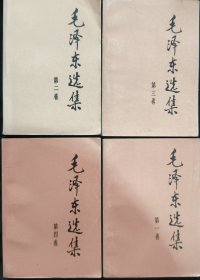 毛泽东选集
第二卷
毛泽东选集
第三卷
毛泽东选集
第四卷
毛泽东选集
第一卷